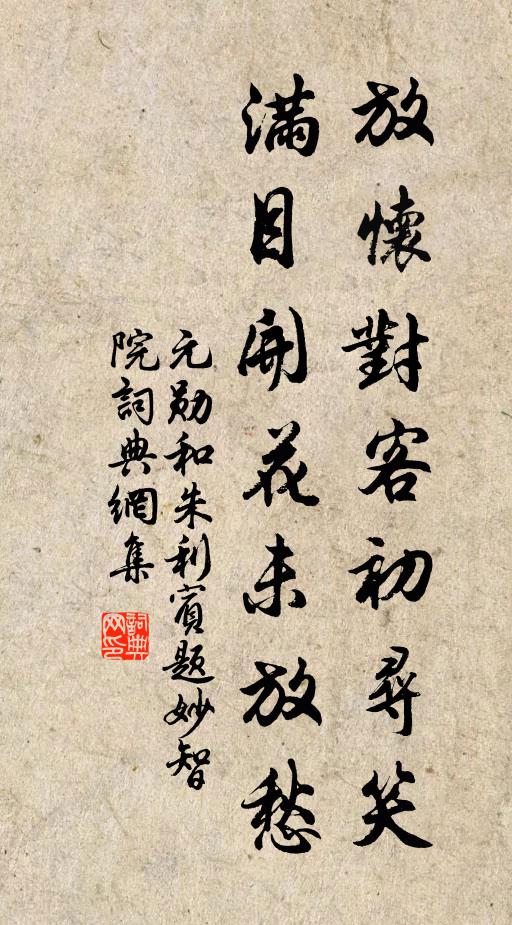 放懷對客初尋笑
滿目開花未放愁
元勛和朱利賓題妙智
院詞典網集
詞典网印